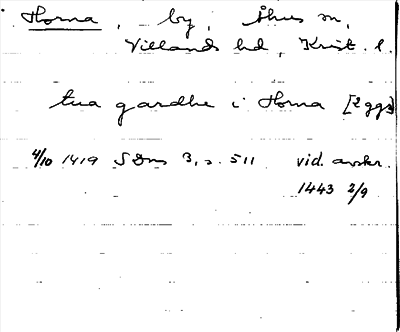 Horna, by, Åhus sn,
Villands hd, Krist. l.
tua gardhe i Horna [2 ggr]
4/10 1419 SDns 3, s. 511 vid. avskr.
1443 2/9